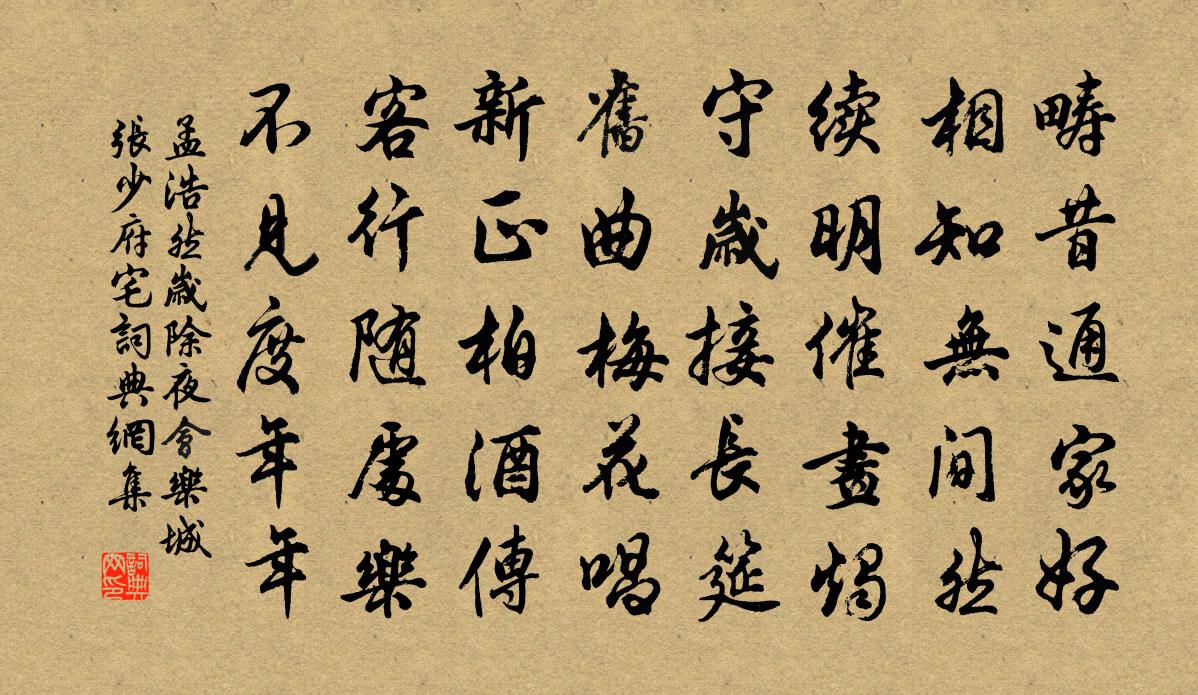 疇昔通家好
相知無間然
续明催畫燭
守歲接長筵
舊曲梅花唱
新正柏酒傳
客行随處樂
不見度年年
孟浩然歲除夜會樂城
張少府宅詞典網集
詞典网印